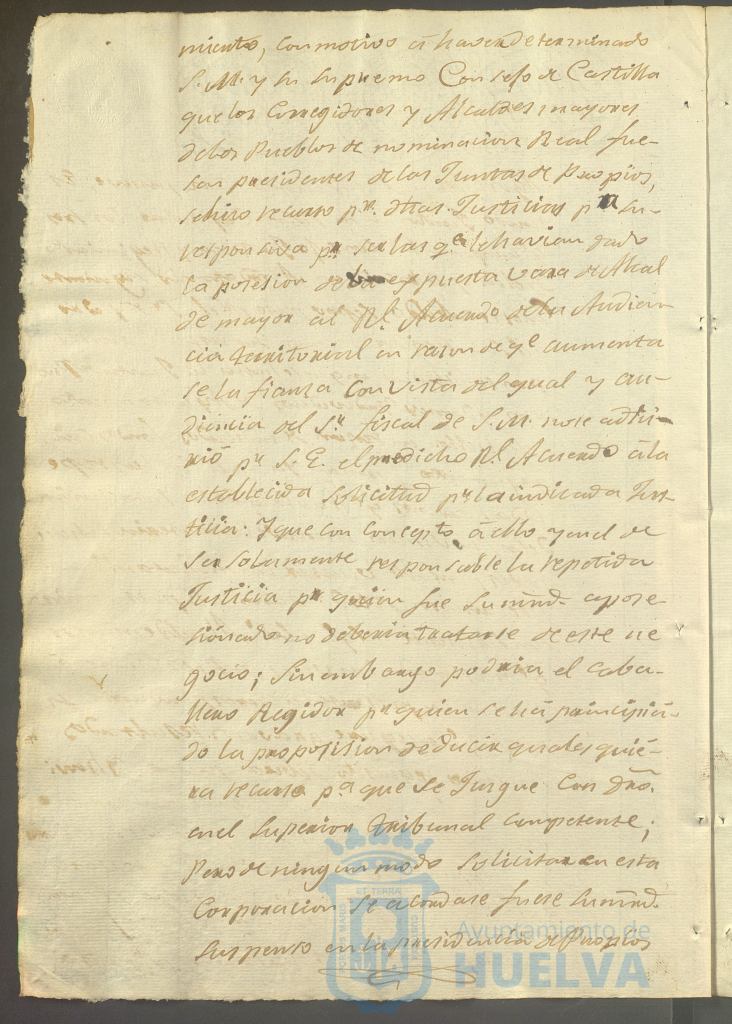 miento, con motivo á haver determinado
S. M. y su supremo Consejo de Castilla
que los Corregidores y Alcaldes mayores
de los Pueblos de nominacion Real fue-
sen presidentes de las Juntas de Propios,
se hizo recurso pr. dhas. Justicias pr su
responsiva pr ser las qe le havian dado
la posesion de la expuesta vara de Alcal
de mayor al Rl. Acuerdo de la Audien-
cia territorial en razon de qe aumenta
se la fianza con vista del qual y au-
diencia del Sr. fiscal de S. M. no se adhi-
rió pr S. E. el predicho Rl. Acuerdo á la
establecida solicitud pr la indicada Jus-
ticia: Y que con concepto á ello y en el de
ser solamente responsable la repetida
Justicia pr quien fue su mrd. apose-
sionado no deberia tratarse de este ne
gocio; sin embargo podria el caba-
llero Regidor pr quien se há principia-
do la proposision deducir quales quié-
ra recurso pa que se Jusgue con dro.
en el Superior tribunal competente;
Pero de ningun modo solicitar en esta
Corporacion se acordase fuese su mrd.
suspenso en la presidencia de Propios
Ayuntamiento de
HUELVA